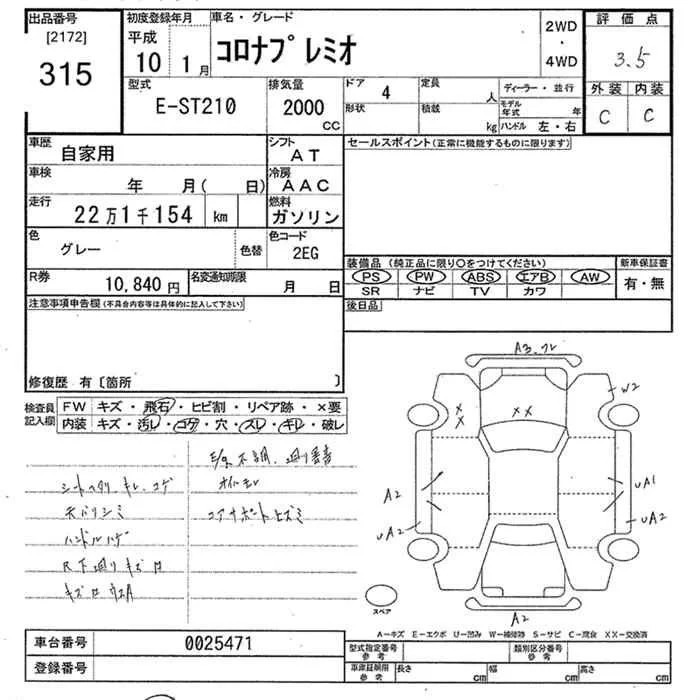 出品番号 初度登録年月 車名・グレード 2WD ・ 4WD 評価点
[2172] 平成 コロナプレミオ 3.5
315 10 1月
型式 排気量 ドア 4 定員 人 ディーラー・並行 外装 内装
E-ST210 2000 CC 形状 積載 kg モデル年式 年 C C
ハンドル 左・右
車歴 自家用 シフト AT セールスポイント(正常に機能するものに限ります)
車検 年 月( 日) 冷房 AAC
走行 22万1千154 km 燃料 ガソリン
色 グレー 色替 色コード 2EG
装備品(純正品に限り○をつけてください) 新車保証書
R券 10,840円 名変通知期限 月 日 PS PW ABS エアB AW 有・無
SR ナビ TV カワ
注意事項申告欄(不具合内容等は具体的に記入して下さい) 後日品
修復歴 有〔箇所 〕
検査員記入欄 FW キズ・飛石・ヒビ割・リペア跡・×要
内装 キズ・汚レ・コゲ・穴・スレ・キレ・破レ
オイルモレ
シートヘタリ キレ、コゲ
コアサポートヒズミ
天バリシミ
ハンドルハゲ
A3
W2
XX
A2
UA1
UA2
UA2
スペア
A2
A－キズ E－エクボ U－凹み W－補修跡 S－サビ C－腐食 XX－交換済
車台番号 0025471 型式指定番号 参考 類別区分番号 参考
登録番号 車庫証明用 参考 長さ cm 幅 cm 高さ cm